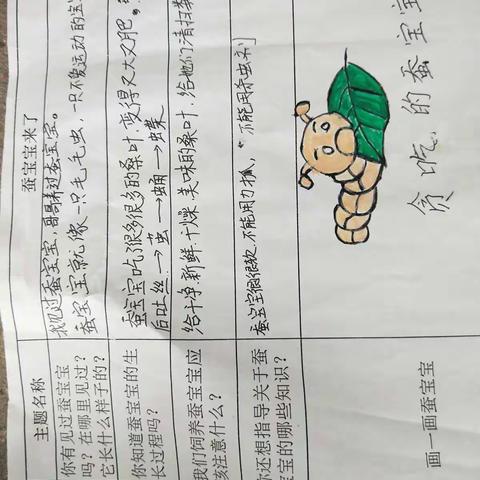 主题名称
蚕宝宝来了
你有见过蚕宝宝
吗?在哪里见过?
它长什么样子的?
我见过蚕宝宝,哥哥养过蚕宝宝。
蚕宝宝就像一只毛毛虫,一只不爱运动的宝
你知道蚕宝宝的生
长过程吗?
蚕宝宝吃了很多很多的桑叶,变得又大又肥。
后吐丝→茧→蛹→蝶
我们饲养蚕宝宝应
该注意什么?
给干净.新鲜.干燥.美味的桑叶.给他们清扫
你还想指导关于蚕
宝宝的哪些知识?
蚕宝宝很很软,不能用力抓,不能用杀虫剂
画一画蚕宝宝
贪吃的蚕宝宝